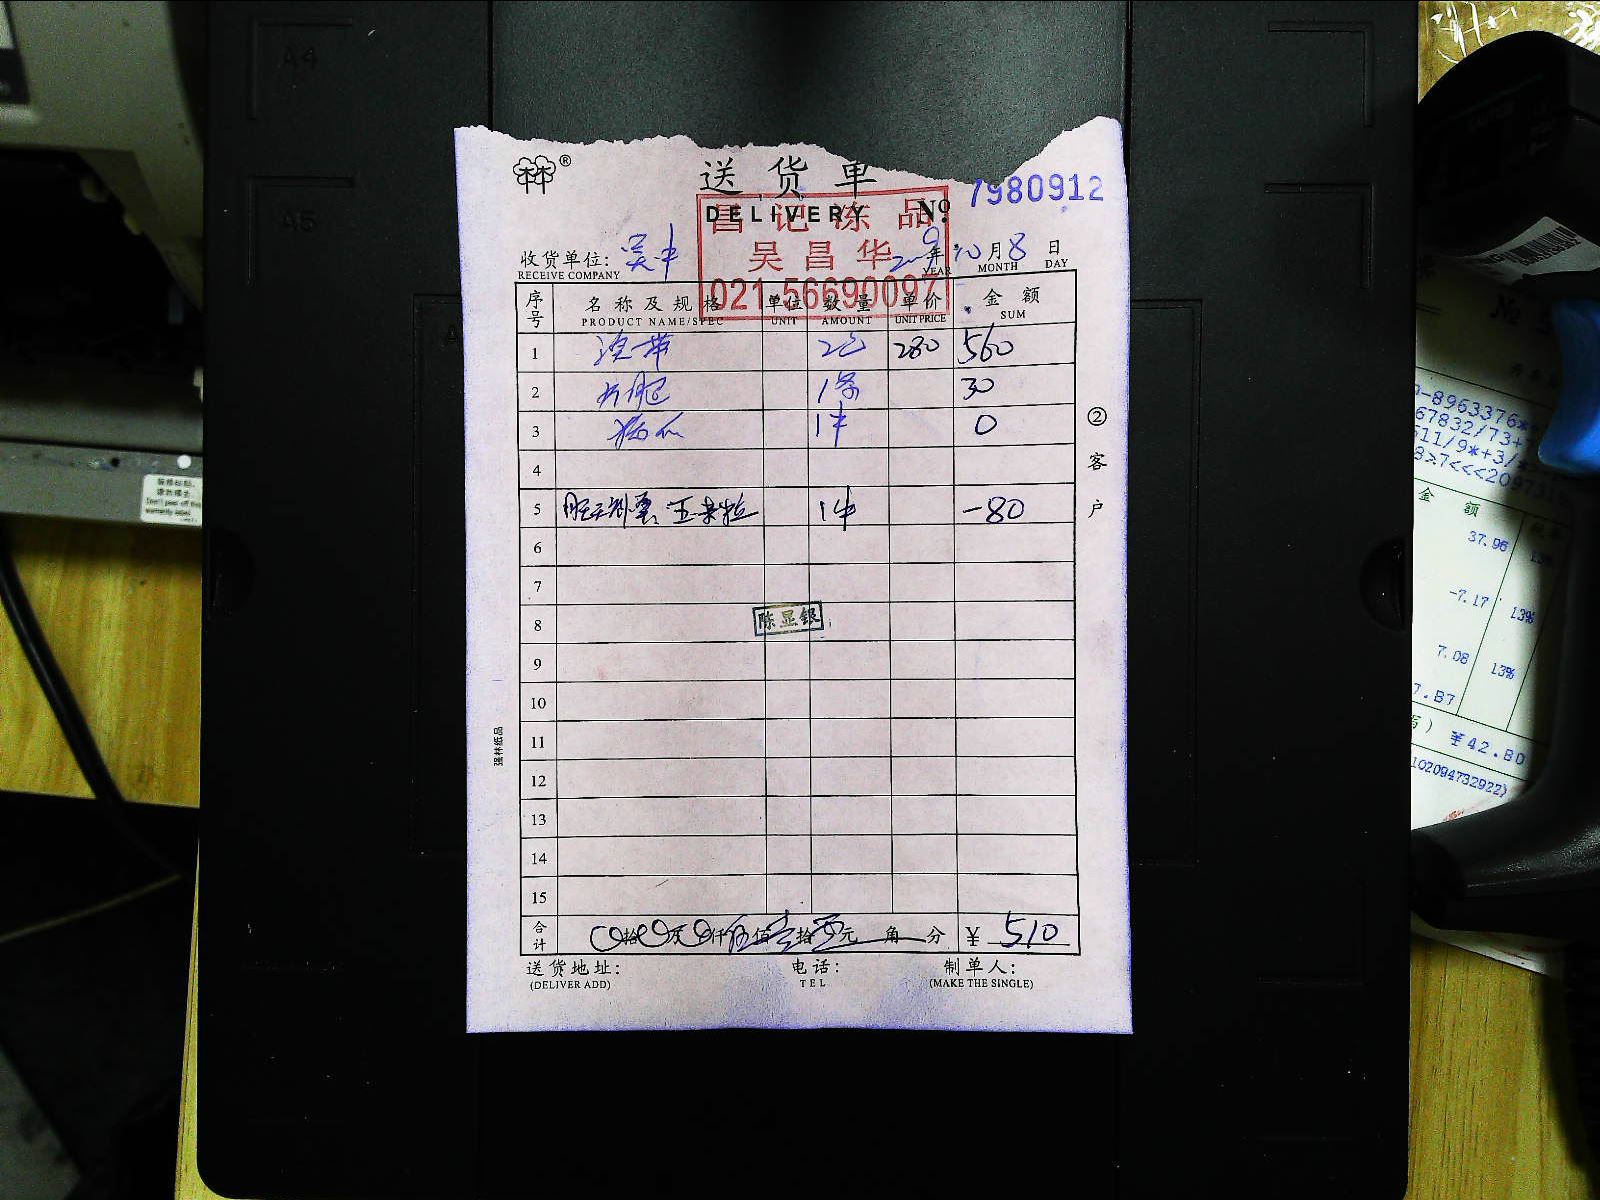 A4
A5
林®
送货单
DELIVERY
No
7980912
昌记冻品
吴昌华
021-56690097
收货单位:
RECEIVE COMPANY
年 10 月 8 日
YEAR MONTH DAY
序号 名称及规格 单位 数量 单价 金额
PRODUCT NAME/SPEC UNIT AMOUNT UNIT PRICE SUM
1 280 560
2 1条 30
3 1件 0
4
5 玉米粒 1件 -80
6
7
8
陈显银
9
10
11
12
13
14
15
合计 拾 万 仟伍佰壹拾 元 角 分 ¥ 510
送货地址: 电话: 制单人:
(DELIVER ADD) TEL (MAKE THE SINGLE)
②客户
强林纸品
金额
37.96
-7.17 13%
7.08 13%
¥42.80